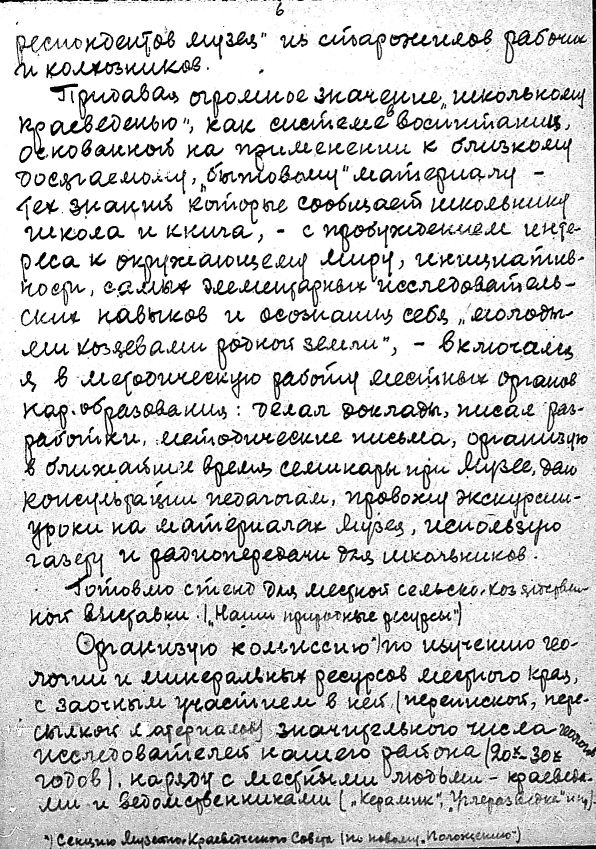 6
респондентов музея" из старожилов рабочих
и колхозников.
Придавая огромное значение „школьному
краеведенью", как системе воспитания,
основанной на применении к близкому
досягаемому, „бытовому" материалу –
тех знаний которые сообщает школьнику
школа и книга, – с пробуждением инте-
реса к окружающему миру, инициатив-
ности, самых элементарных исследователь-
ских навыков и осознания себя „молоды-
ми хозяевами родной земли", – включаюсь
я в методическую работу местных органов
нар. образования: делал доклады, писал раз-
работки, методические письма, организую
в ближайшие время семинары при Музее, даю
консультации педагогам, провожу экскурсии-
уроки на материалах Музея, использую
газету и радиопередачи для школьников.
Готовлю стенд для местной сельско-хозяйствен-
ной выставки. („Наши природные ресурсы")
Организую комиссию*) по изучению гео-
логии и минеральных ресурсов местного края,
с заочным участием в ней (перепиской, пере-
сылкой материалов) значительного числа геологов
исследователей нашего района (20х-30х
годов), наряду с местными людьми – краеведа-
ми и ведомственниками („Керамик", „Углеразведка" и пр).
*) Секцию Музейно-Краеведческого Совета (по новому „Положению")